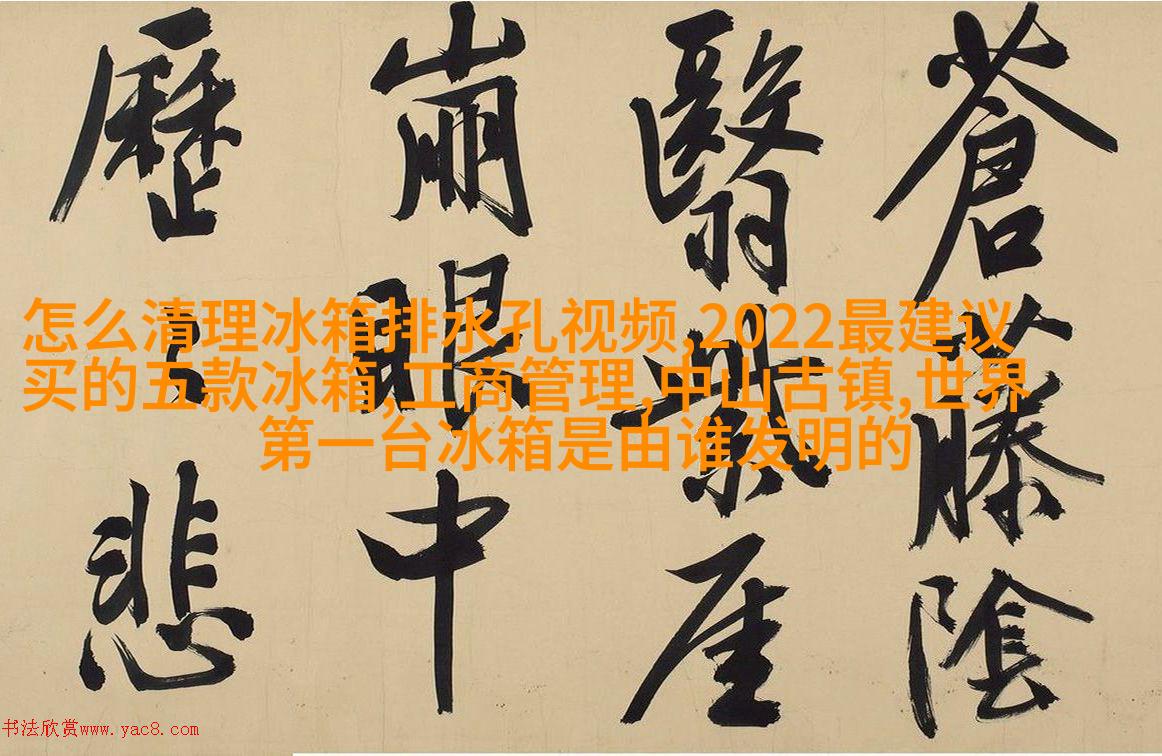 蒼藤陰
翳紫厓
崩眼中
歷〻悲
怎么清理冰箱排水孔视频,2022最建议
买的五款冰箱,工商管理,中山古镇,世界
第一台冰箱是由谁发明的
书法欣赏www.yac8.com